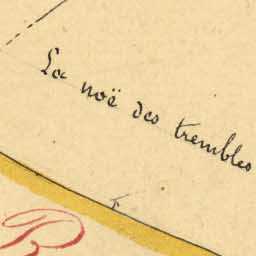 La noë des trembles
B